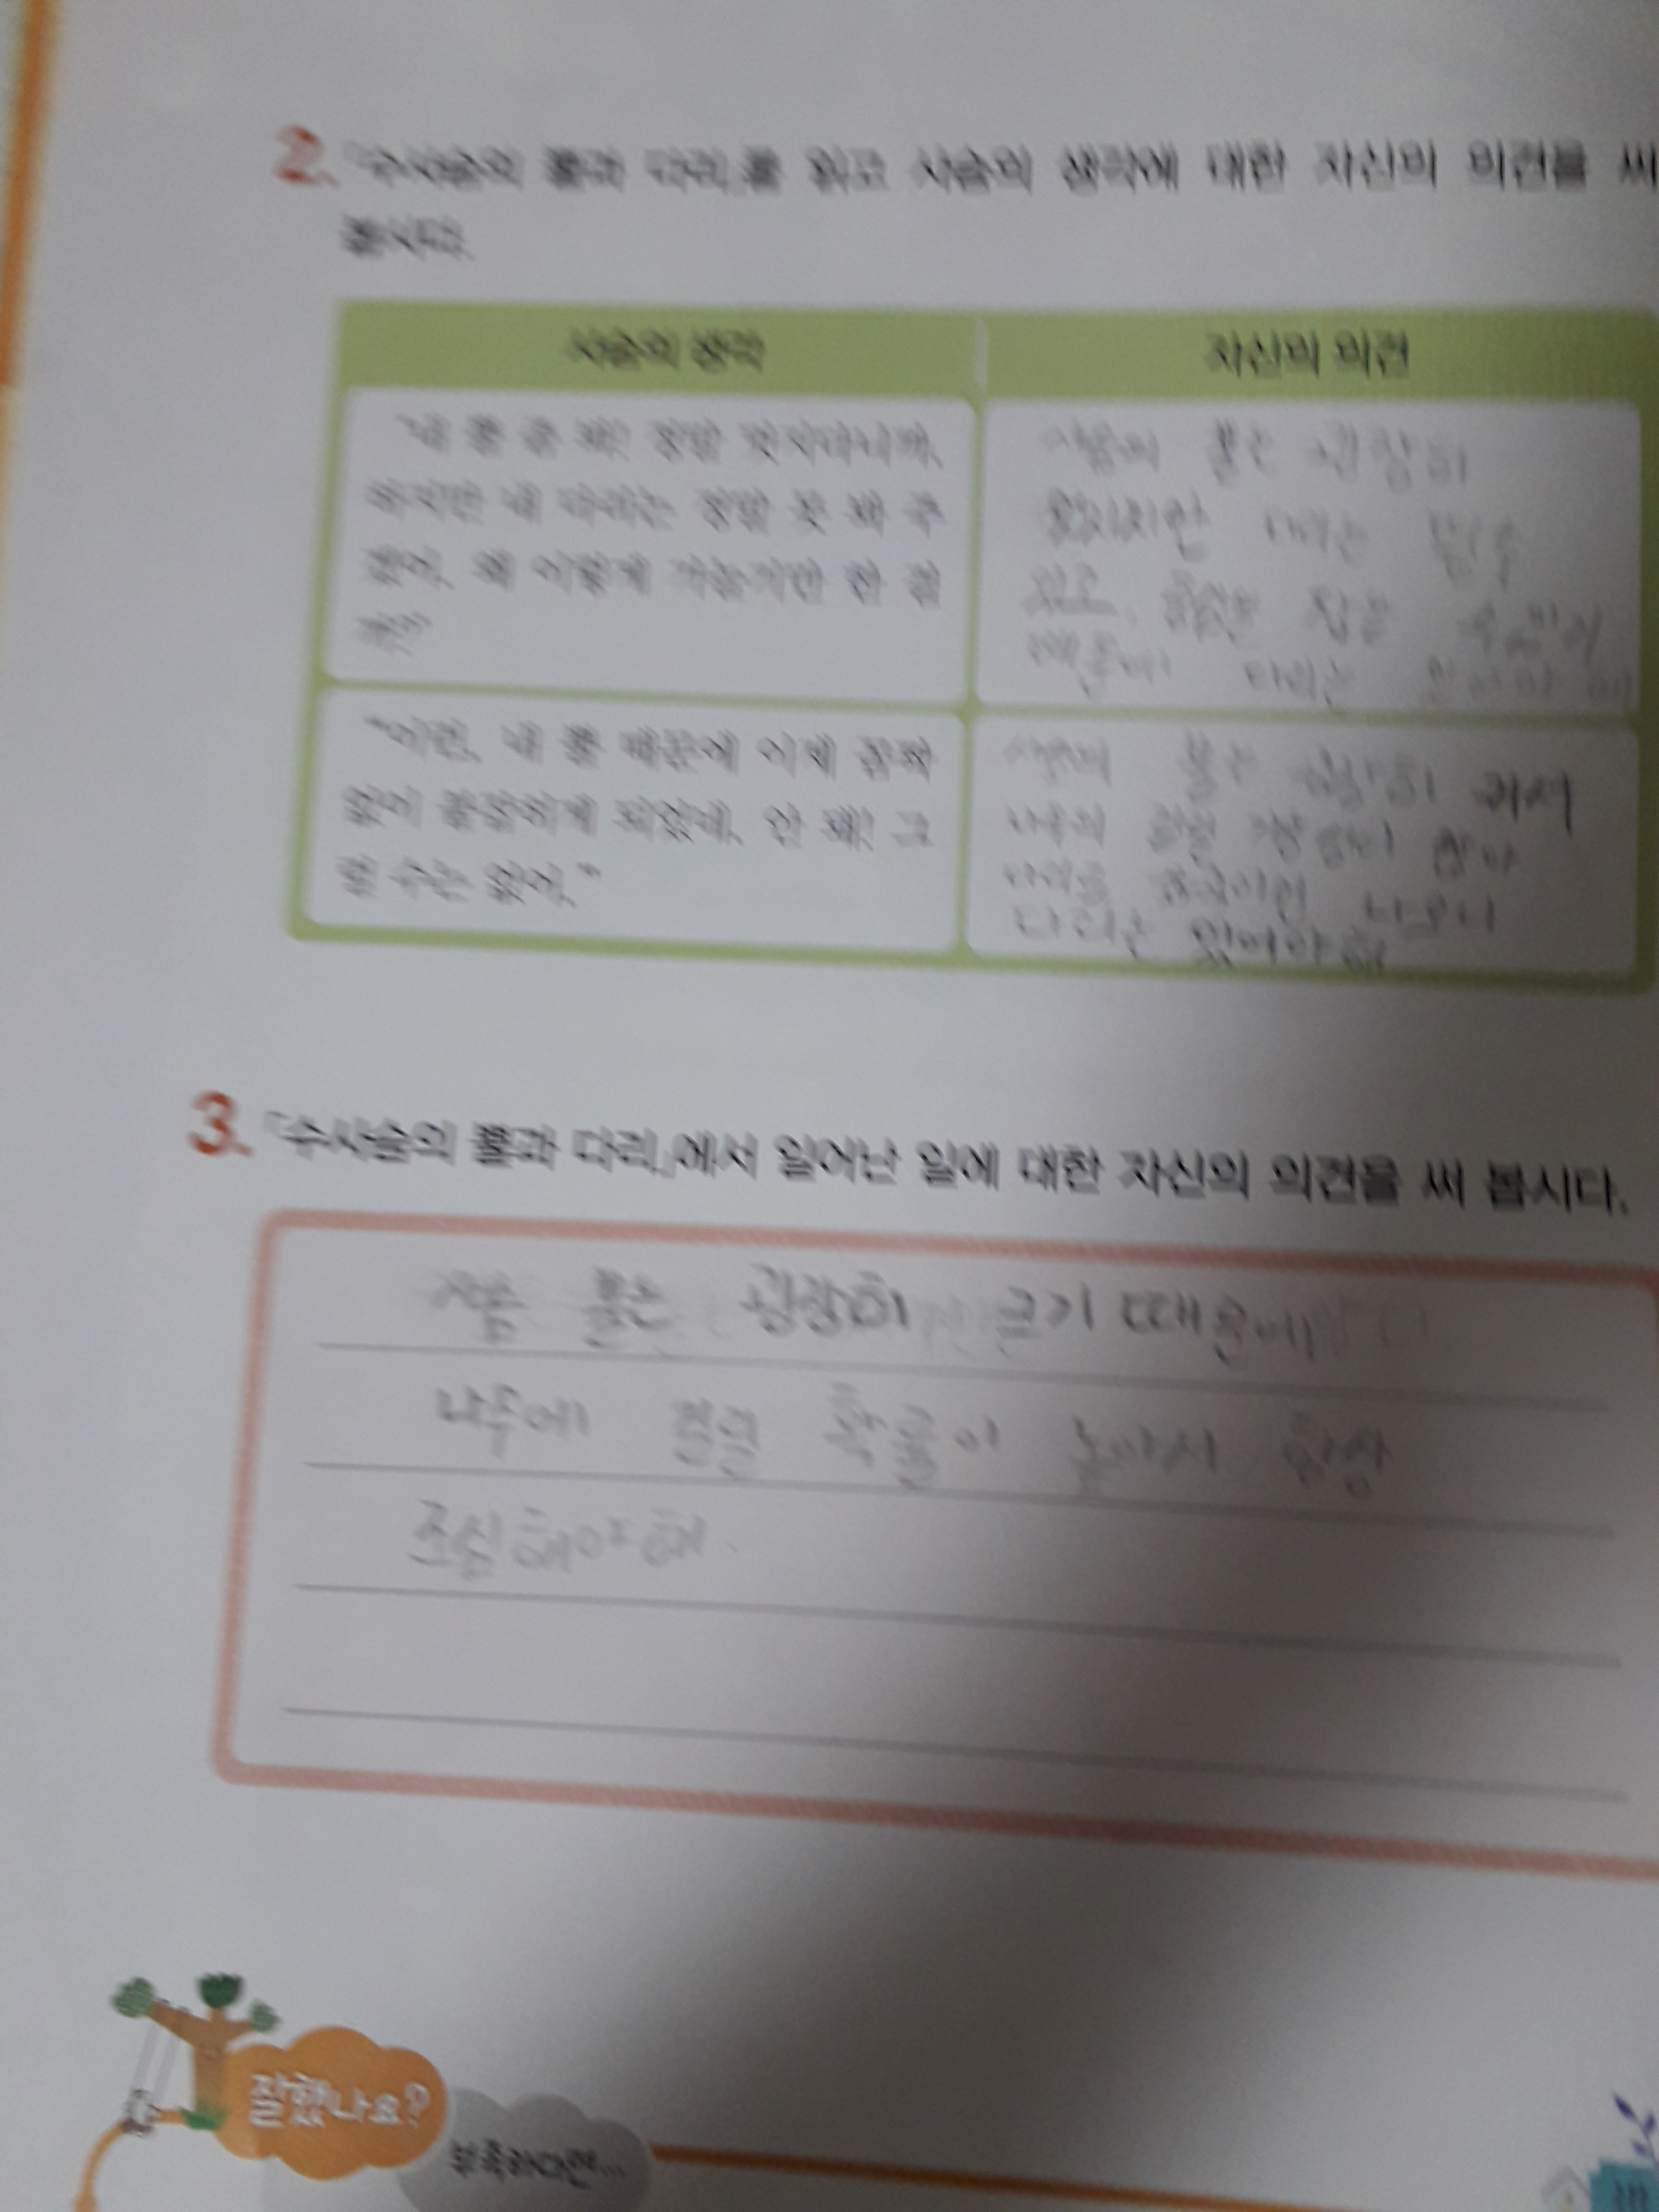 2. 「수사슴의 뿔과 다리」를 읽고 사슴의 생각에 대한 자신의 의견을 써
봅시다.
사슴의 생각
자신의 의견
"내 뿔 좀 봐! 정말 멋지다니까.
하지만 내 다리는 정말 못 봐 주
겠어. 왜 이렇게 가늘기만 한 걸
까?"
사슴의 뿔은 굉장히
멋있지만 다리는
있고
때문에 다리는
"이런, 내 뿔 때문에 이제 꼼짝
없이 붙잡히게 되었네. 안 돼! 그
럴 수는 없어."
사슴의 뿔은 굉장히 커서
다리는 있어야 해
3. 「수사슴의 뿔과 다리」에서 일어난 일에 대한 자신의 의견을 써 봅시다.
사슴 뿔은 굉장히 크기 때문에
나무에 걸릴 확률이 높아서 항상
조심해야 해.
잘했나요?
부족하다면...